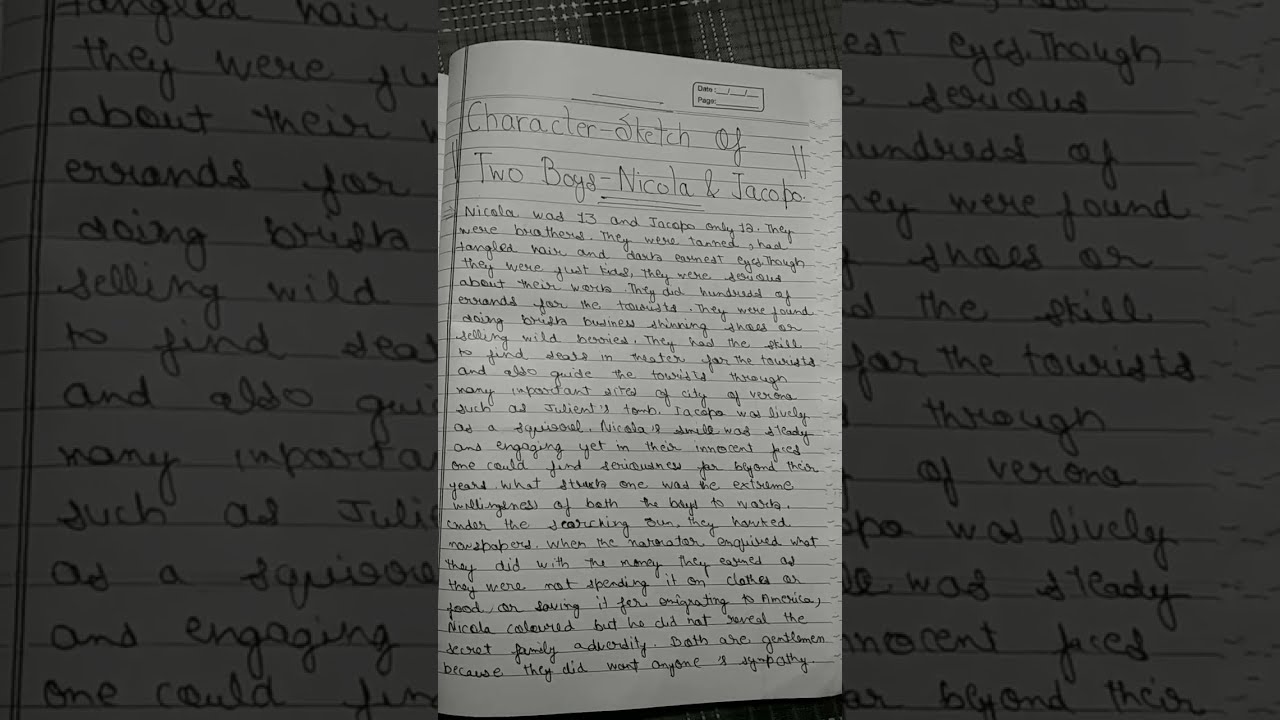 Date:__/__/__
Page:______
Character-Sketch Of
Two Boys-Nicola & Jacopo.
Nicola was 13 and Jacopo only 12. They
were brothers. They were tanned, had
tangled hair and dark earnest eyes. Though
they were just kids, they were serious
about their work. They did hundreds of
errands for the tourists. They were found
doing brisk business shinning shoes or
selling wild berries. They had the skill
to find seats in theater for the tourists
and also guide the tourists through
many inportant sites of city of verona
such as Julient's tomb. Jacopo was lively
as a squirrel. Nicola's smile was steady
and engaging yet in their innocent faces
one could find seriousness far beyond their
years. what struck one was the extreme
willingness of both the boys to work.
Under the scarching sun, they hawked
newspapers. When the narrator enquired what
they did with the money they earned as
they were not spending it on clothes or
food or saving it for emigrating to America,
Nicola coloured but he did not reveal the
secret family adversity. Both are gentlemen
because they did want anyone's sympathy.